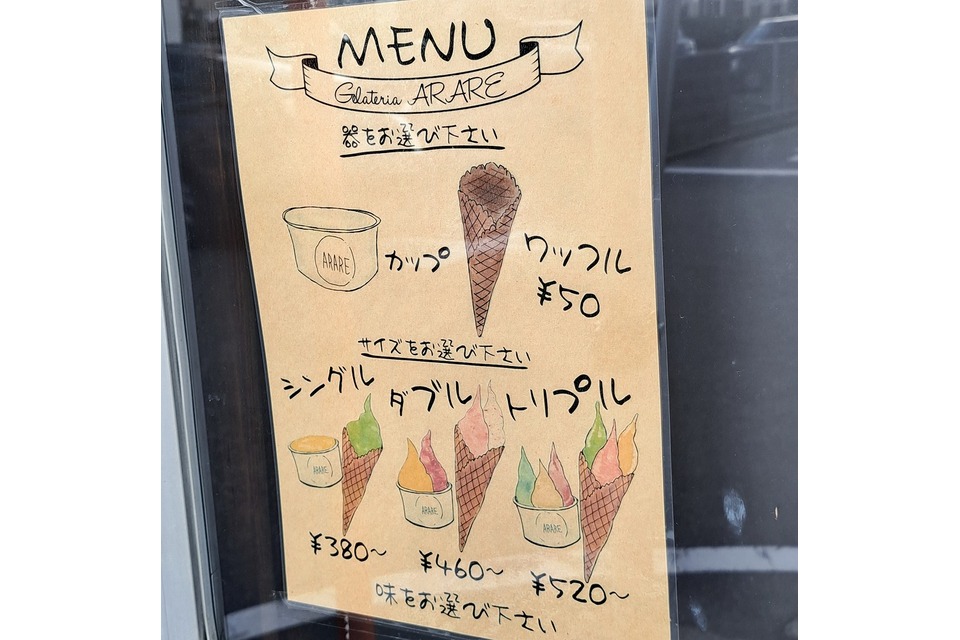 MENU
Gelateria ARARE
器をお選び下さい
ARARE
カップ
ワッフル
¥50
サイズをお選び下さい
シングル ダブル トリプル
ARARE
ARARE
ARARE
¥380~
¥460~
¥520~
味をお選び下さい